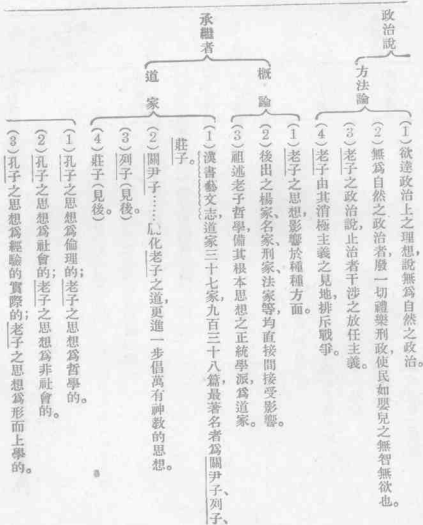 政治說
方法論
（1）欲達政治上之理想，說無為自然之政治。
（2 無為自然之政治者，廢一切禮樂刑政，使民如嬰兒之無智無欲也。
（3）老子之政治說，止治者干涉之放任主義。
4 老子由其消極主義之見地排斥戰爭。
承繼者
概論
（1）老子之思想，影響於種種方面。
（2）後出之楊家、名家、刑家、法家等，均直接間接受影響。
（3）祖述老子哲學，備其根本思想之正統學派，為道家。
道家
（1）漢書藝文志，道家三十七家，九百三十八篇，最著名者為關尹子、列子、
莊子。
（2）關尹子……化老子之道，更進一步倡萬有神教的思想。
（3）列子（見後）
（4）莊子（見後）
（1）孔子之思想為倫理的；老子之思想為哲學的。
（2）孔子之思想為社會的；老子之思想為非社會的。
（3）孔子之思想為經驗的實際的；老子之思想為形而上學的。